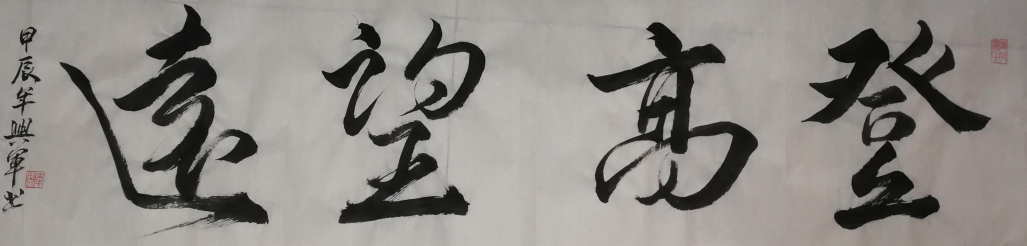 登高望遠
甲辰年興軍书